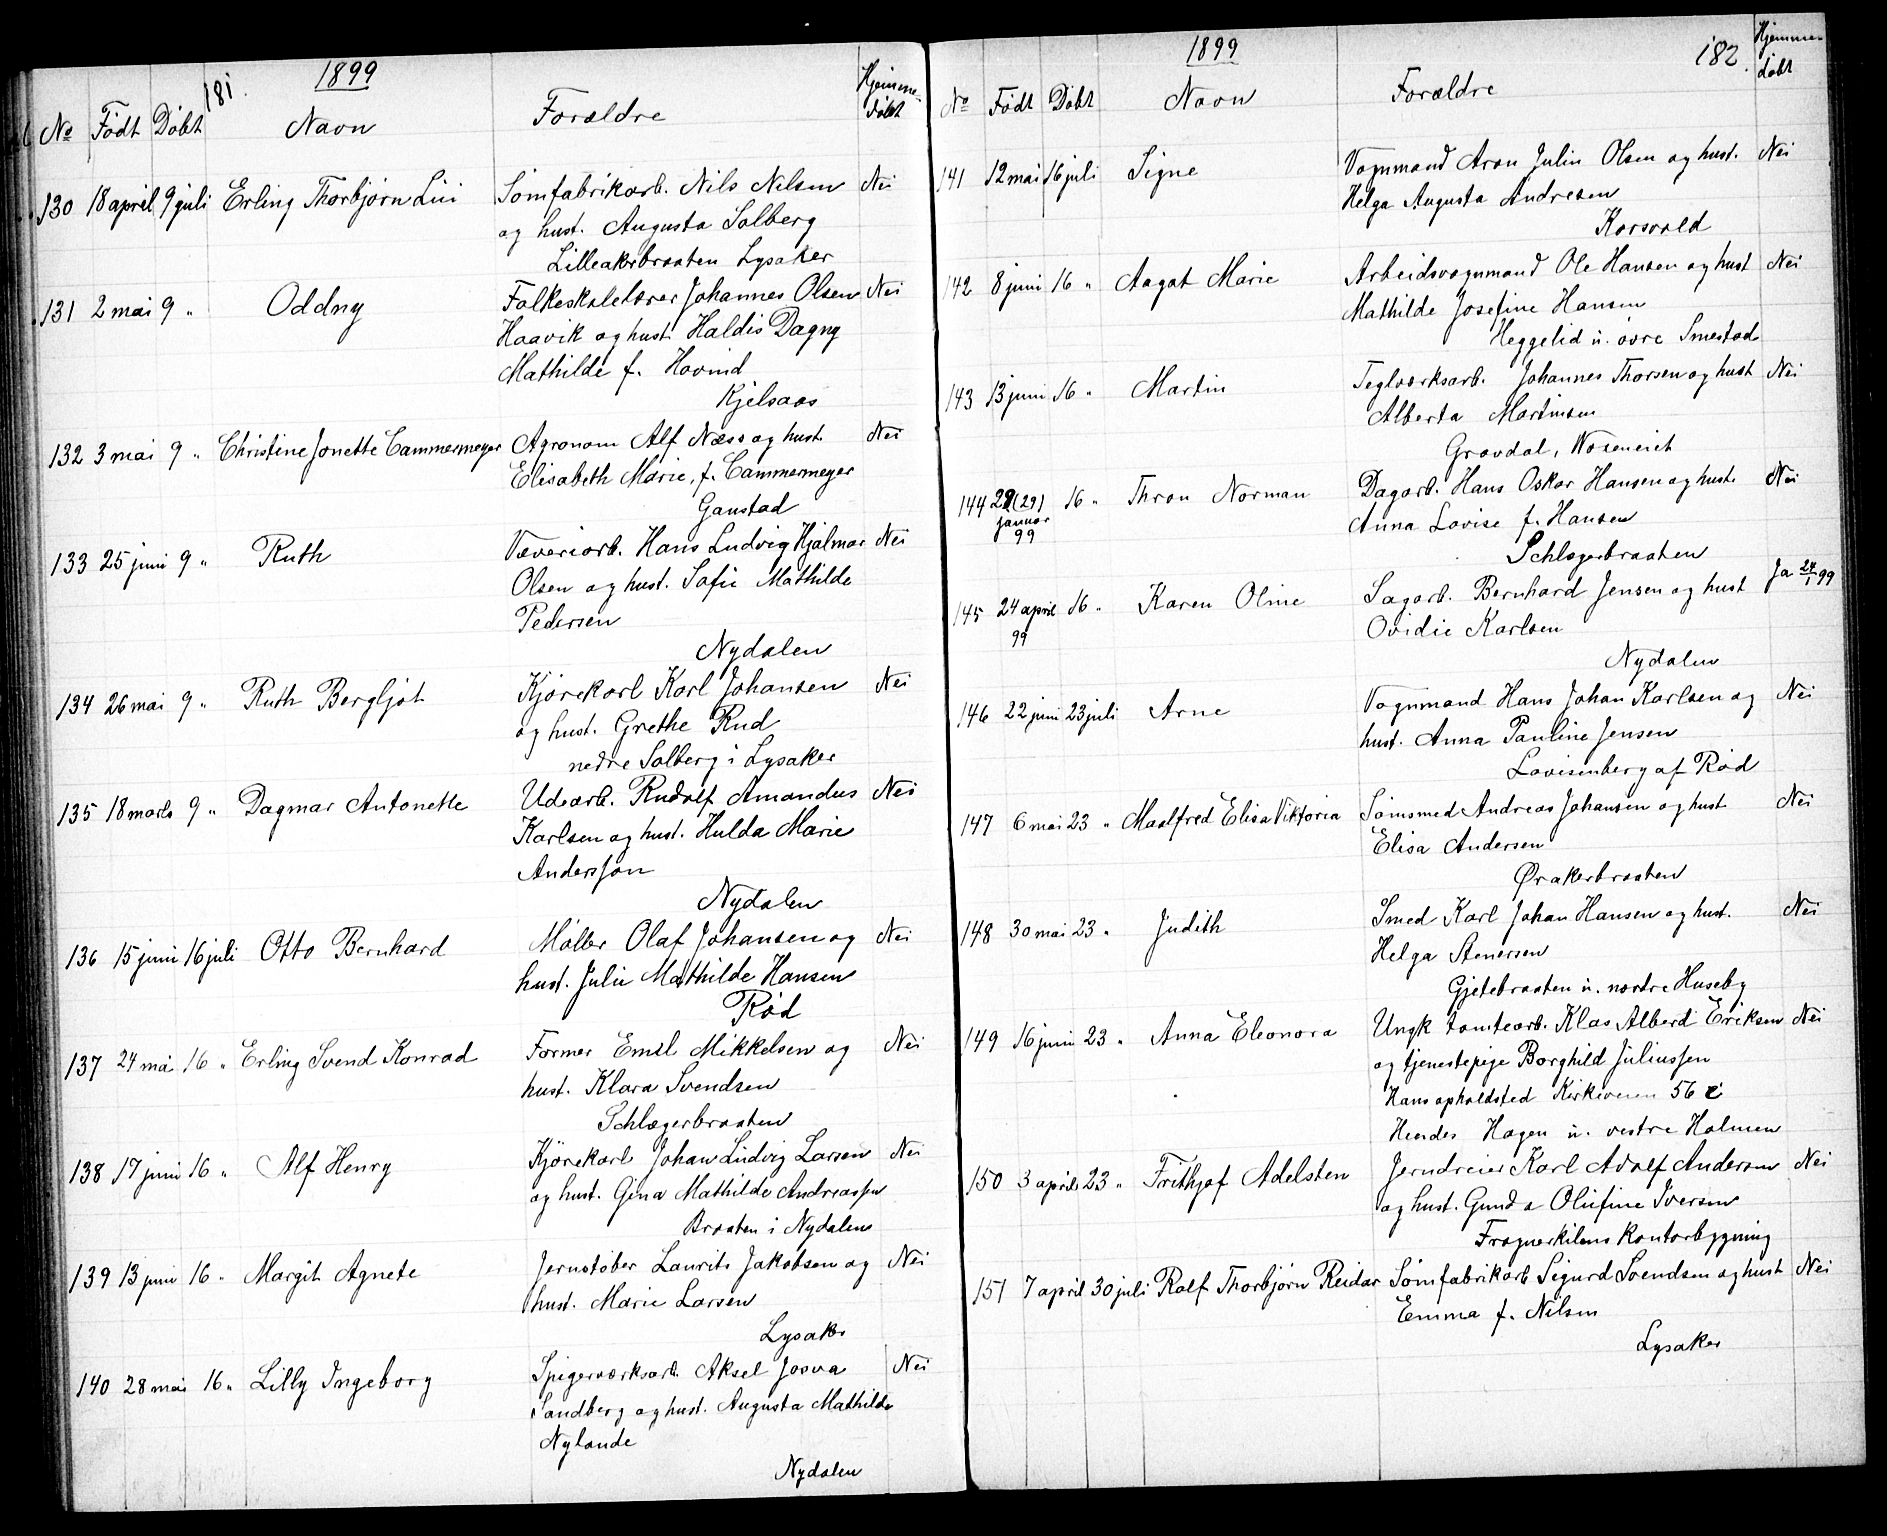 181.
1899
No Født Døbt Navn Forældre Hjemme-
døbt
130 18 april 9 juli Erling Thorbjørn Lui Sømfabrikarb. Nils Nilsen Nei
og hust. Augusta Solberg
Lilleakerbraaten Lysaker
131 2 mai 9 " Oddny Folkeskolelærer Johannes Olsen Nei
Haavik og hust. Haldis Dagny
Mathilde f. Hovind
Kjelsaas
132 3 mai 9 " Christine Jonette Cammermeyer Agronom Alf Næss og hust. Nei
Elisabeth Marie, f. Cammermeyer
Gaustad
133 25 juni 9 " Ruth Væveriarb. Hans Ludvig Hjalmar Nei
Olsen og hust. Sofie Mathilde
Pedersen
Nydalen
134 26 mai 9 " Ruth Bergljot Kjørekarl Karl Johansen Nei
og hust. Grethe Rud
nedre Solberg i Lysaker
135 18 marts 9 " Dagmar Antonette Udearb. Rudolf Amandus Nei
Karlsen og hust. Hulda Marie
Andersson
Nydalen
136 15 juni 16 juli Otto Bernhard Møller Olaf Johansen og Nei
hust. Julie Mathilde Hansen
Rød
137 24 mai 16 " Erling Svend Konrad Former Emil Mikkelsen og Nei
hust. Klara Svendsen
Schlægerbraaten
138 17 juni 16 " Alf Henry Kjørekarl Johan Ludvig Larsen Nei
og hust. Gina Mathilde Andreassen
Braaten i Nydalen
139 13 juni 16 " Margit Agnete Jernstøber Laurits Jakobsen og Nei
hust. Marie Larsen
Lysaker
140 28 mai 16 " Lilly Ingeborg Spigerværksarb. Aksel Josva Nei
Sandberg og hust. Augusta Mathilde
Nylande
Nydalen
1899
182.
No Født Døbt Navn Forældre Hjemme-
døbt
141 12 mai 16 juli Signe Vognmand Aron Julin Olsen og hust. Nei
Helga Augusta Andresen
Korsvold
142 8 juni 16 " Aagot Marie Arbeidsvognmand Ole Hansen og hust Nei
Mathilde Josefine Hansen
Heggelid u. øvre Smestad
143 13 juni 16 " Martin Teglværksarb. Johannes Thorsen og hust Nei
Alberta Martinsen
Gravdal,
144 28 (29) 16 " Thron Norman Dagarb. Hans Oskar Hansen og hust. Nei
januar
99
Anna Lovise f. Hansen
Schlægerbraaten
145 24 april 16 " Karen Oline Sagarb. Bernhard Jensen og hust Ja 24/1 99
99
Ovidie Karlsen
Nydalen
146 22 juni 23 juli Arne Vognmand Hans Johan Karlsen og Nei
hust. Anna Pauline Jensen
Lovisenberg af Rød
147 6 mai 23 " Maalfred Elisa Viktoria Sømsmed Andreas Johansen og hust Nei
Elisa Andersen
Ørakerbraaten
148 30 mai 23 " Judith Smed Karl Johan Hansen og hust. Nei
Helga Stenersen
Gjetebraaten u. nordre Huseby
149 16 juni 23 " Anna Eleonora Ungk tomtearb. Klas Alberd Eriksen Nei
og tjenestepige Borghild Juliussen
Hans opholdsted Kirkeveien 56 c
Hendes Hagen u. vestre Holmen
150 3 april 23 " Frithjof Adelsten Jerndreier Karl Adolf Andersen Nei
og hust. Gunda Olufine Iversen
Frognerkilens kontorbygning
151 7 april 30 juli Ralf Thorbjørn Reidar Sømfabrikarb Sigurd Svendsen og hust Nei
Emma f. Nilsen
Lysaker